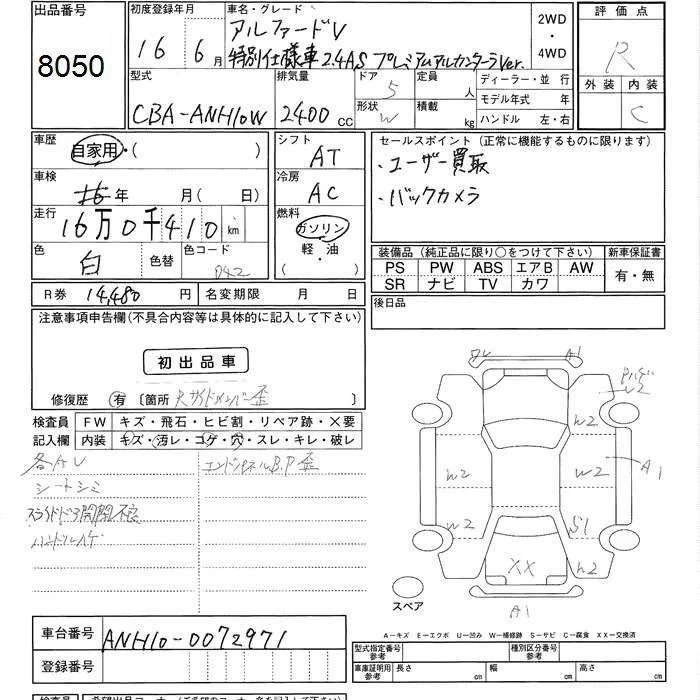 出品番号 初度登録年月 車名・グレード 評価点
8050 16年 6月 アルファードV 2WD・4WD R
特別仕様車 2.4AS プレミアムアルカンターラVer.
型式 排気量 ドア 定員 ディーラー・並行 外装 内装
CBA-ANH10W 2400cc 5 人 モデル年式 年 C
形状 W 積載 kg ハンドル 左・右
車歴 自家用・( ) シフト AT セールスポイント(正常に機能するものに限ります)
車検 16年 月( 日) 冷房 AC ・ユーザー買取
走行 16万0千410km 燃料 ガソリン 軽・油 ( ) ・バックカメラ
色 白 色替 色コード 042
装備品(純正品に限り○をつけて下さい) 新車保証書
PS PW ABS エアB AW 有・無
SR ナビ TV カワ
R券 14,480円 名変期限 月 日 後日品
注意事項申告欄(不具合内容等は具体的に記入して下さい)
初出品車
修復歴 有 〔箇所 Rサイドメンバー歪 〕
検査員 FW キズ・飛石・ヒビ割・リペア跡・×要
記入欄 内装 キズ・汚レ・コゲ・穴・スレ・キレ・破レ
各AU エンドパネルB.P歪
シートシミ
スライドドア開閉不良
ハンドルハゲ
A1
U2
W2
W2 W2 A1
W2 S1
XX W2
A1
スペア
A−キズ E−エクボ U−凹み W−補修跡 S−サビ C−腐食 XX−交換済
車台番号 ANH10-0072971
登録番号
型式指定番号 参考 種別区分番号 参考
車庫証明用 参考 長さ cm 幅 cm 高さ cm